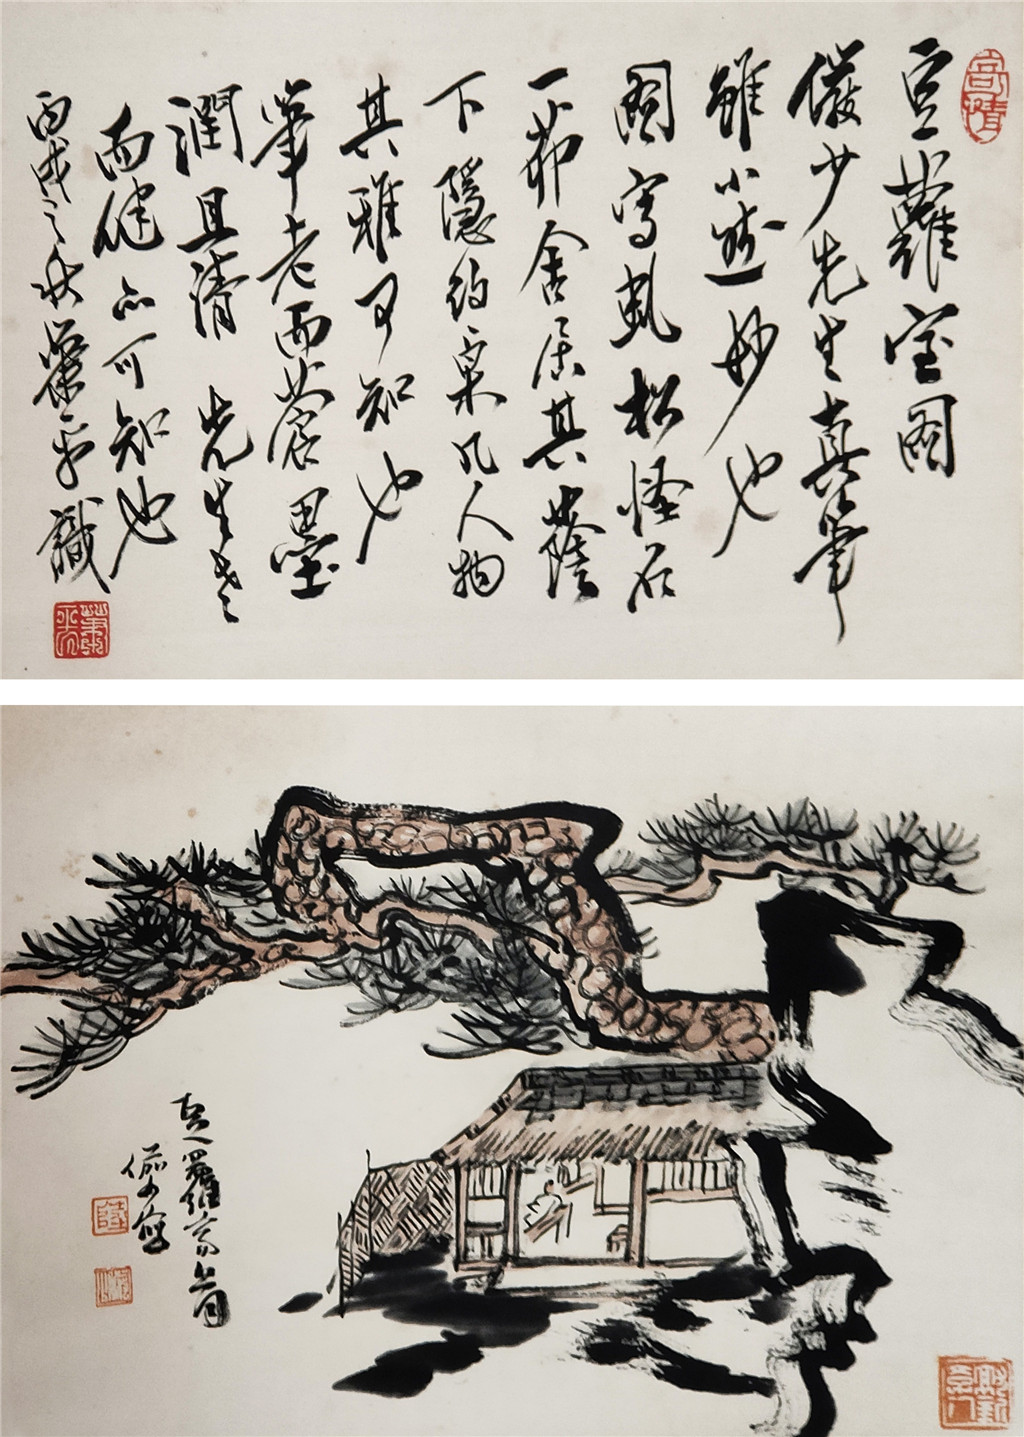 豆蘿室圖
儼少先生真筆
雖小然妙也
圖寫虬松怪石
一茆舍居其蔭
下隱約案几人物
其雅可知也
筆老而蒼墨
潤且清 先生老
而健亦可知也
丙戌之秋蕭平識
蕭平
儼少寫